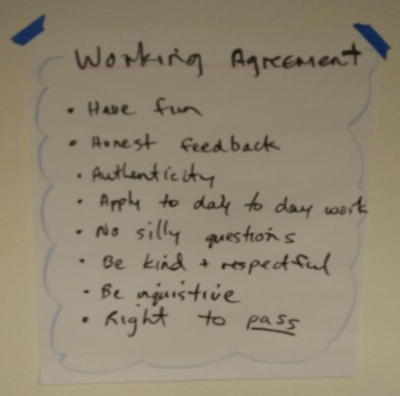 Working Agreement
• Have fun
• Honest feedback
• Authenticity
• Apply to daly to day work
• No silly questions
• Be kind + respectful
• Be inquistive
• Right to pass